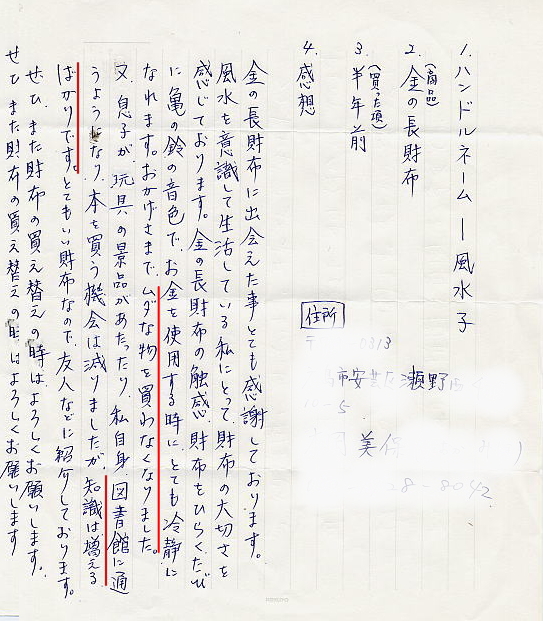 1. ハンドルネーム ― 風水子
2. (商品) 金の長財布
3. (買った頃) 半年前
4. 感想
金の長財布に出会えた事とても感謝しております。
風水を意識して生活している私にとって、財布の大切さを
感じております。金の長財布の触感、財布をひらくたび
に亀の鈴の音色で、お金を使用する時に、とても冷静に
なれます。おかげさまで、ムダな物を買わなくなりました。
又、息子が、玩具の景品があたったり、私自身、図書館に通
うようなり、本を買う機会は減りましたが、知識は増える
ばかりです。とてもいい財布なので、友人などに紹介しております。
ぜひ、また財布の買え替えの時はよろしくお願いします。
せひ また財布の買え替えの時はよろしくお願いします
住所
〒 0313
市安芸区瀬野
-5
美
8-8042